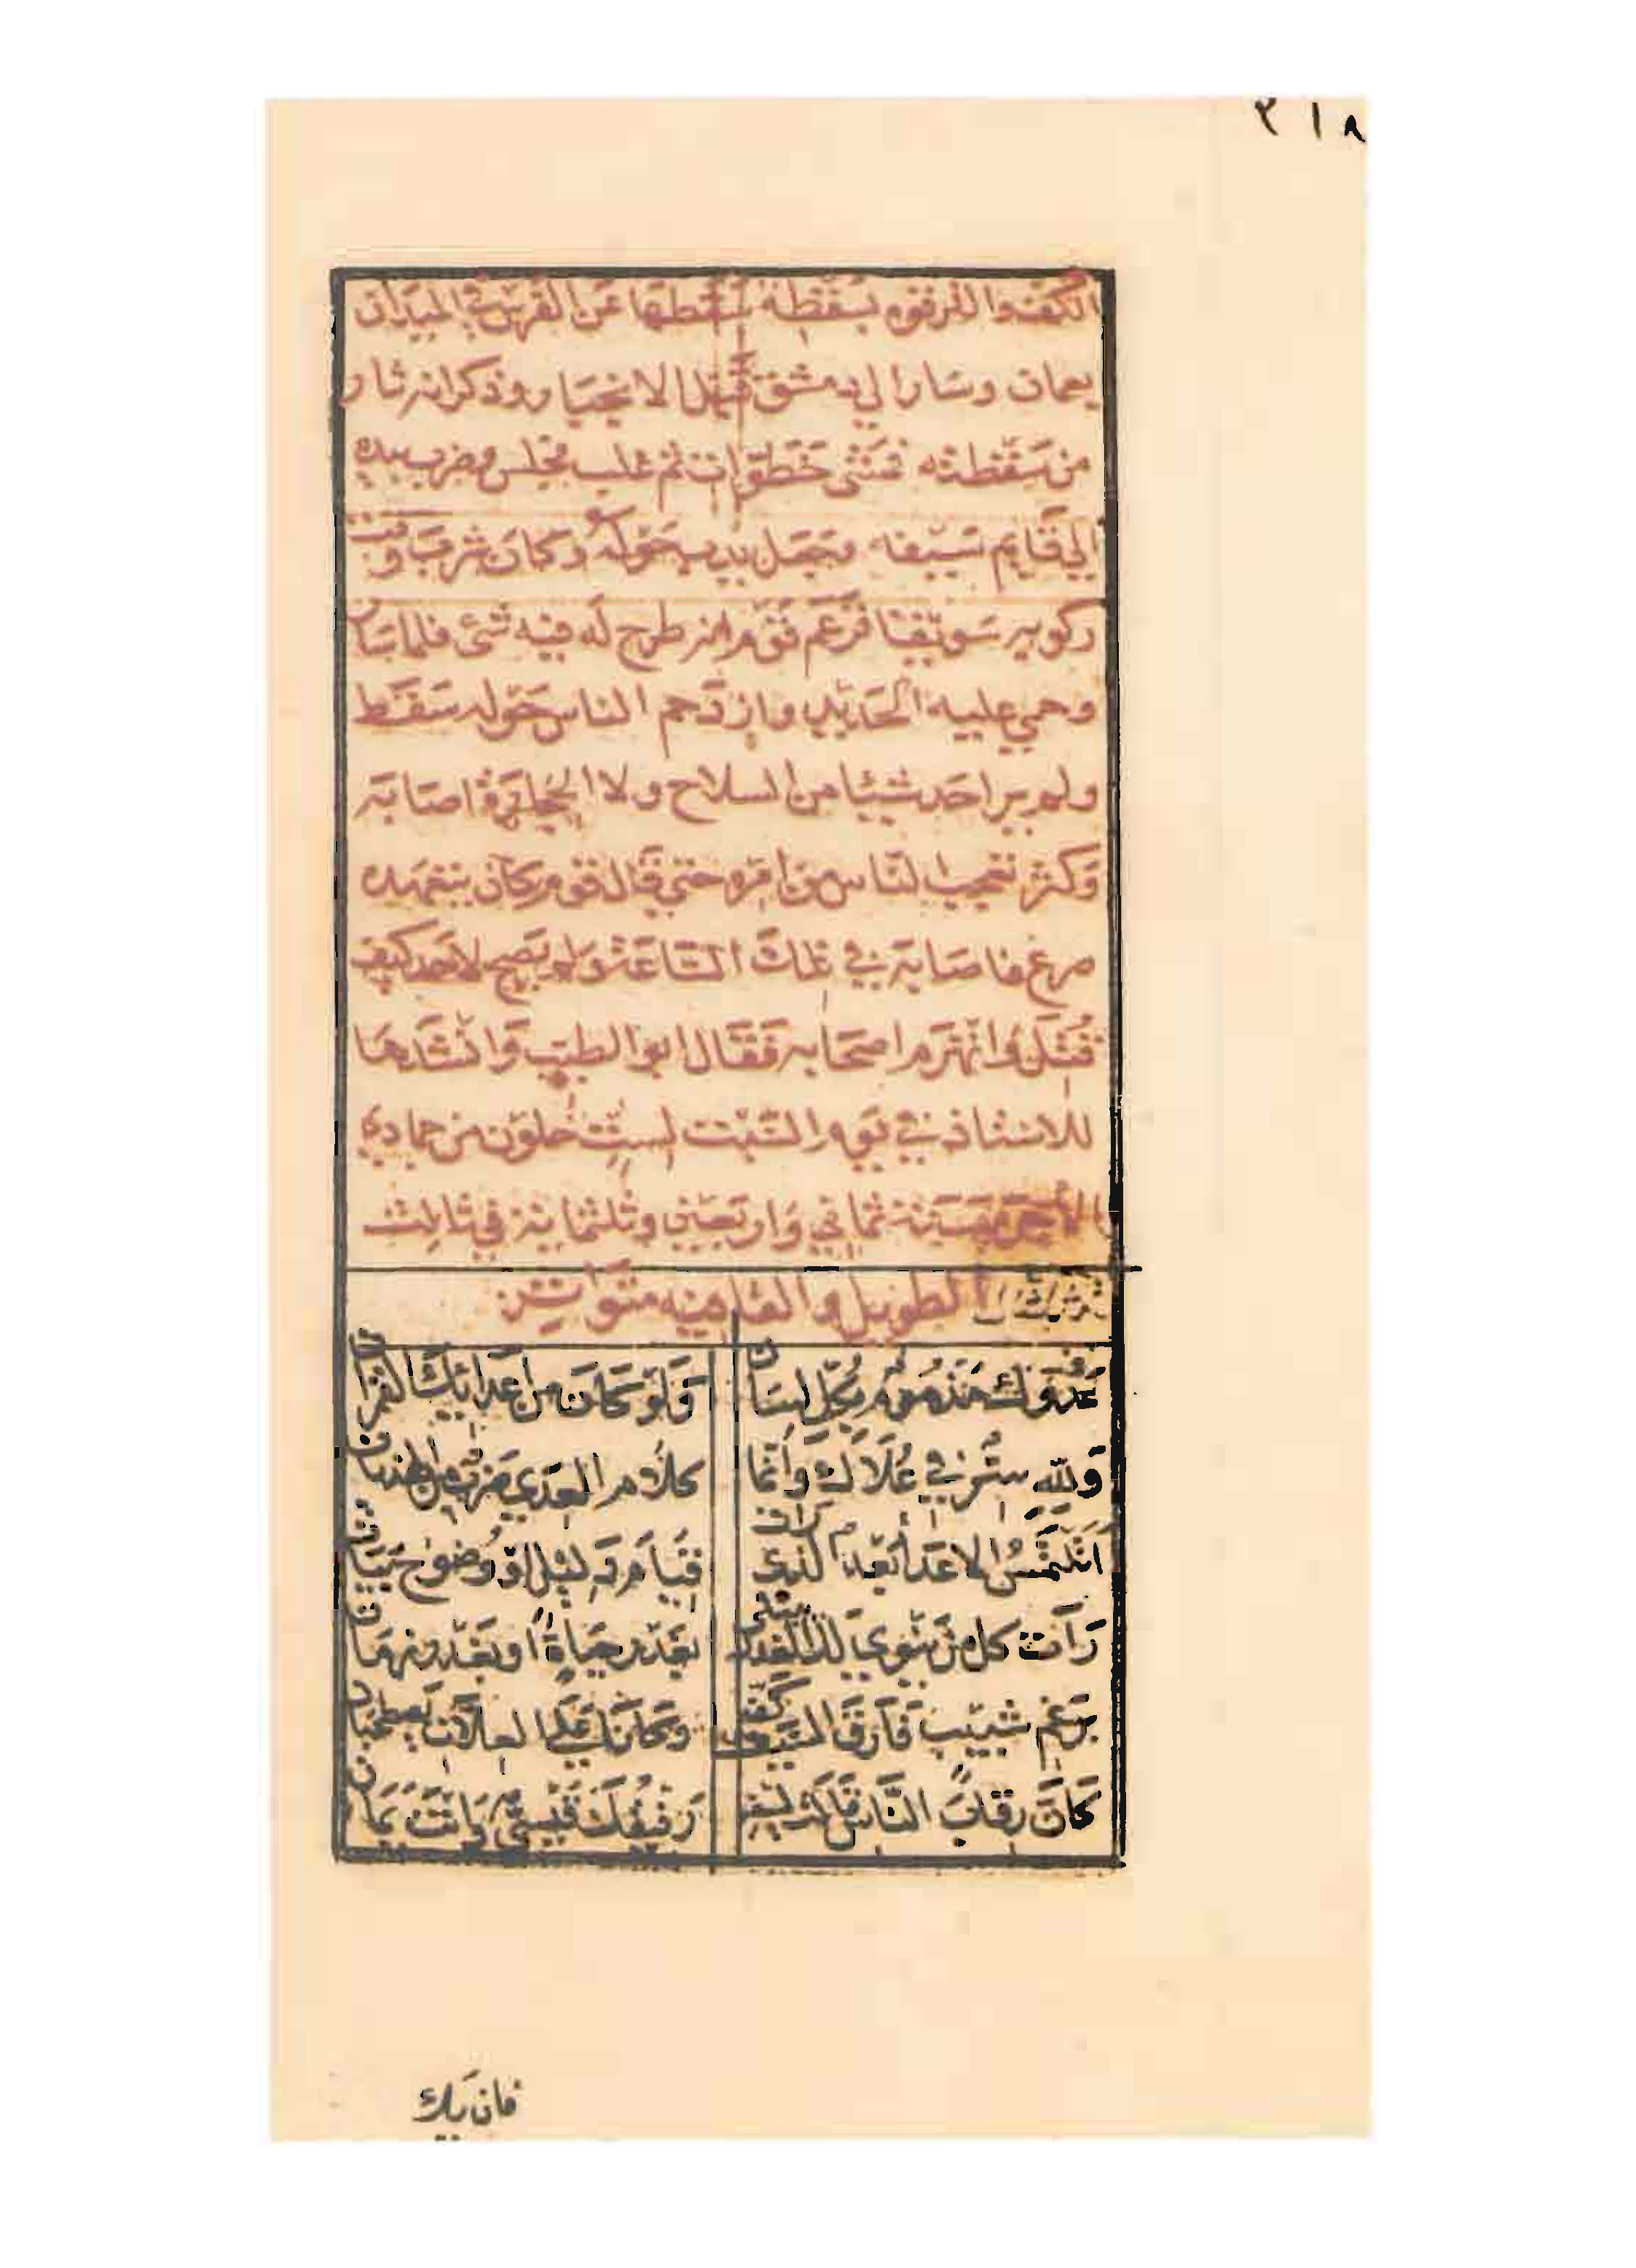 ٢١٨
الكتف والمرفق بسقطة سقطها عن الفرس في الميدان
بعمان وسارا لي دمشق قبل الاخبار وذكر انه ثار
من سقطته فمشى خطوات ثم غلب فجلس وضرب بيده
الي قايم سيفه وجعل يديه حوله وكان شرب وقت
ركوبه سويقا فزعم قوم انه طرح له فيه شئ فلما سار
وحمي عليه الحديد وازدحم الناس حوله سقط
ولم ير احد شيئا من السلاح ولا الحجارة اصابه
وكثر تعجب الناس من امره حتي قال قوم كان يتعهده
صرع فاصابه في تلك الساعة ولم يصح لاحد كيف
قتل وانهزم اصحابه فقال ابو الطيب وانشدها
للاستاذ في يوم السبت لست خلون من جمادي
الاخرة سنة ثماني واربعين وثلثماية في ثالث
الطويل والقافيه متواتر
عدوك مذموم بكل لسان ولو كان من اعدائك القمران
ولله سر في علاك وانما كلام العدي ضرب من الهذيان
اتلتمس الاعدا بعد الذي رات قيام دليل او وضوح بيان
رات كل من ينوي لك الغدر يبتلي بغدر حياة او بغدر زمان
برغم شبيب فارق السيف كفه وكانا علي العلات يصطحبان
كان رقاب الناس قالت لسيفه رفيقك قيسي وانت يمان
فان يك